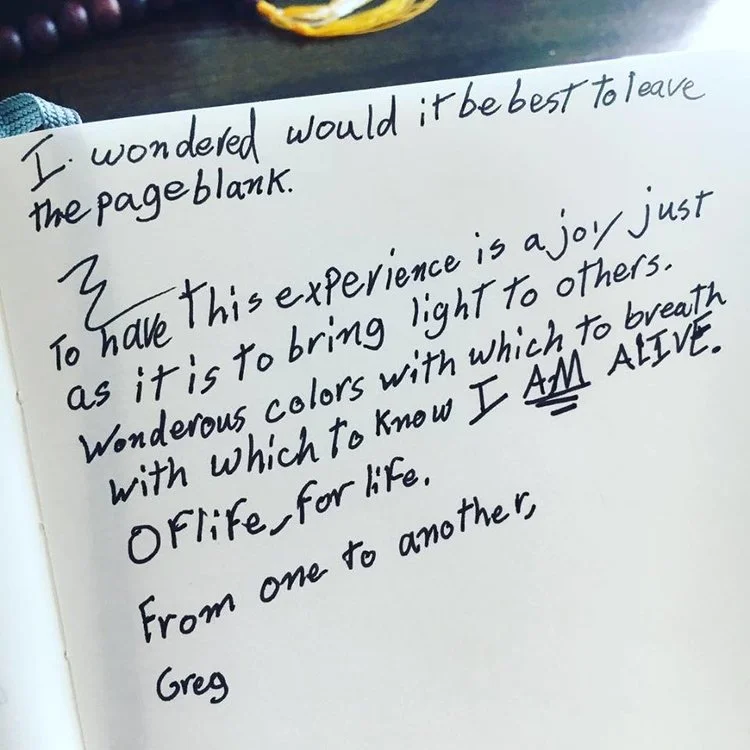 I. wondered would it be best to leave
the page blank.
To have this experience is a joy just
as it is to bring light to others.
Wonderous colors with which to breath
with which to know I AM ALIVE.
OF life, for life.
From one to another,
Greg